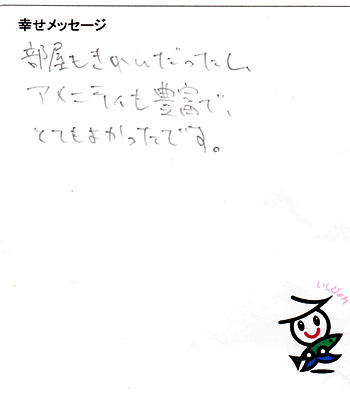 幸せメッセージ
部屋もきれいだったし、
アメニティも豊富で、
とてもよかったです。
いしぴょん